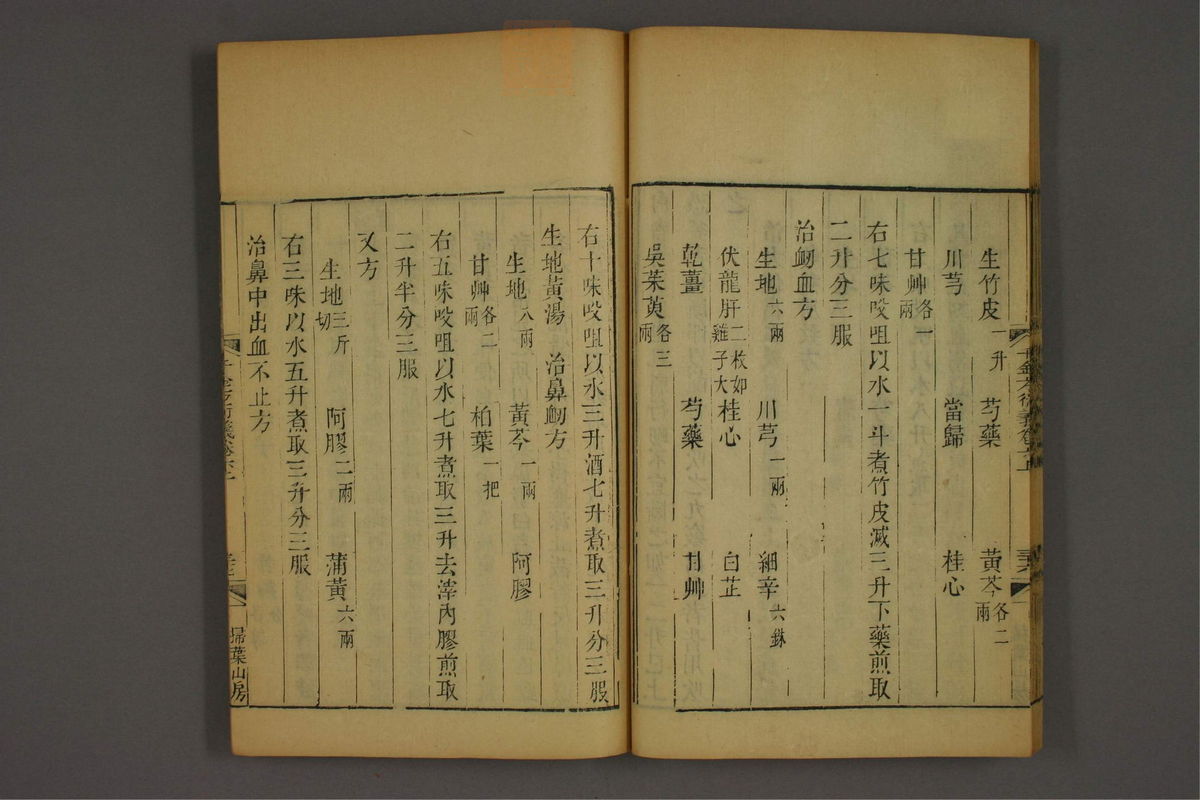 生竹皮一升 芍藥 黃芩各二兩
川芎 當歸 桂心
甘艸各一兩
右七味㕮咀以水一斗煮竹皮減三升下藥煎取
二升分三服
治衄血方
生地六兩 川芎一兩 細辛六銖
伏龍肝二枚如雞子大 桂心 白芷
乾薑 芍藥 甘艸
吳茱萸各三兩
右十味㕮咀以水三升酒七升煮取三升分三服
生地黃湯 治鼻衄方
生地八兩 黃芩一兩 阿膠
甘艸各二兩 柏葉一把
右五味㕮咀以水七升煮取三升去滓內膠煎取
二升半分三服
又方
生地三斤切 阿膠二兩 蒲黃六兩
右三味以水五升煮取三升分三服
治鼻中出血不止方
掃葉山房